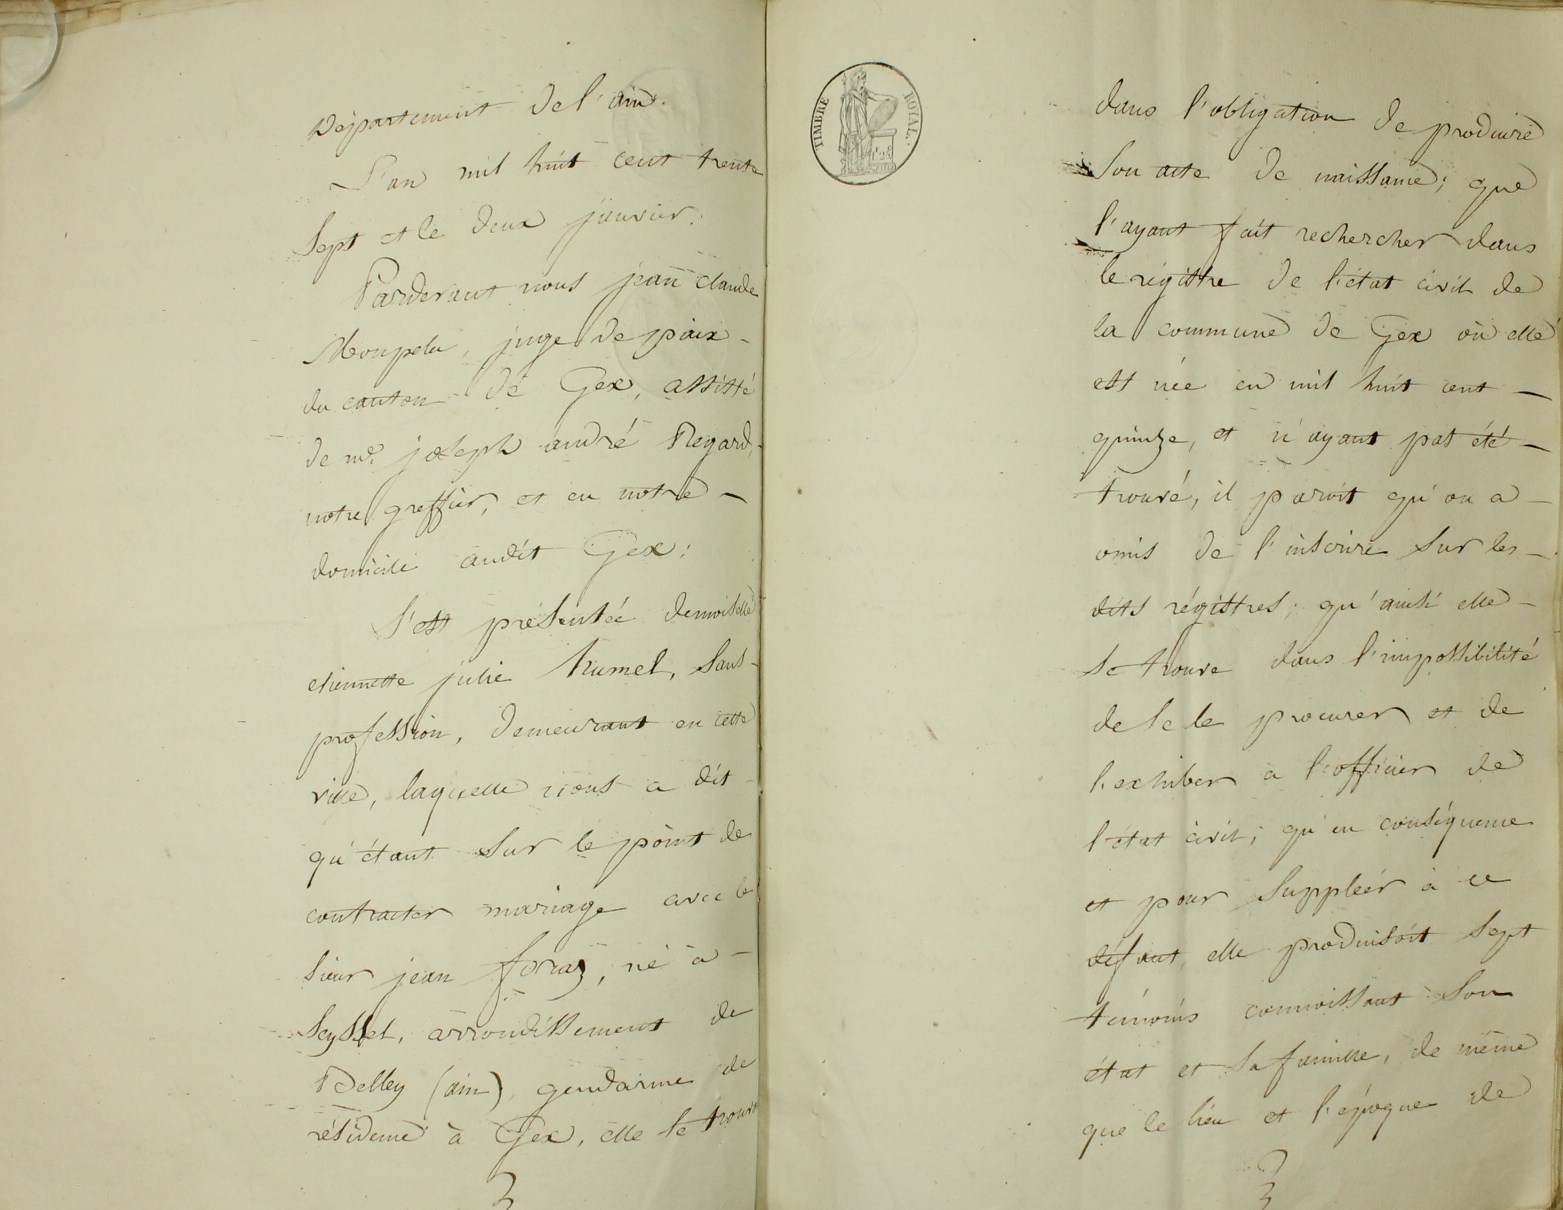 Département de l'ain.
L'an mil huit cent trente
sept et le deux janvier.
Pardevant nous jean claude
Monpela, juge de paix -
du canton de Gex, assisté
de me. joseph andré Regard,
notre greffier, et en notre -
domicile audit Gex;
S'est présentée demoiselle
etiennette julie humel, sans -
profession, demeurant en cette
ville, laquelle nous a dit -
qu'étant sur le point de
contracter mariage avec le
sieur jean foraz, né à -
Seyssel, arrondissement de
Belley (ain), gendarme de
résidence à Gex, elle se trouve
TIMBRE ROYAL.
dans l'obligation de produire
son acte de naissance; que
l'ayant fait rechercher dans
le régistre de l'état civil de
la commune de Gex où elle
est née en mil huit cent -
quinze, et n'ayant pas été -
trouvé, il paroit qu'on a -
omis de l'inscrire sur les -
dits régistres; qu'ainsi elle -
se trouve dans l'impossibilité
de se le procurer et de
l'exhiber a l'officier de
l'état civil; qu'en conséquence
et pour suppléer à ce
défaut, elle produisoit sept
témoins connoissant son
état et sa famille, de même
que le lieu et l'époque de